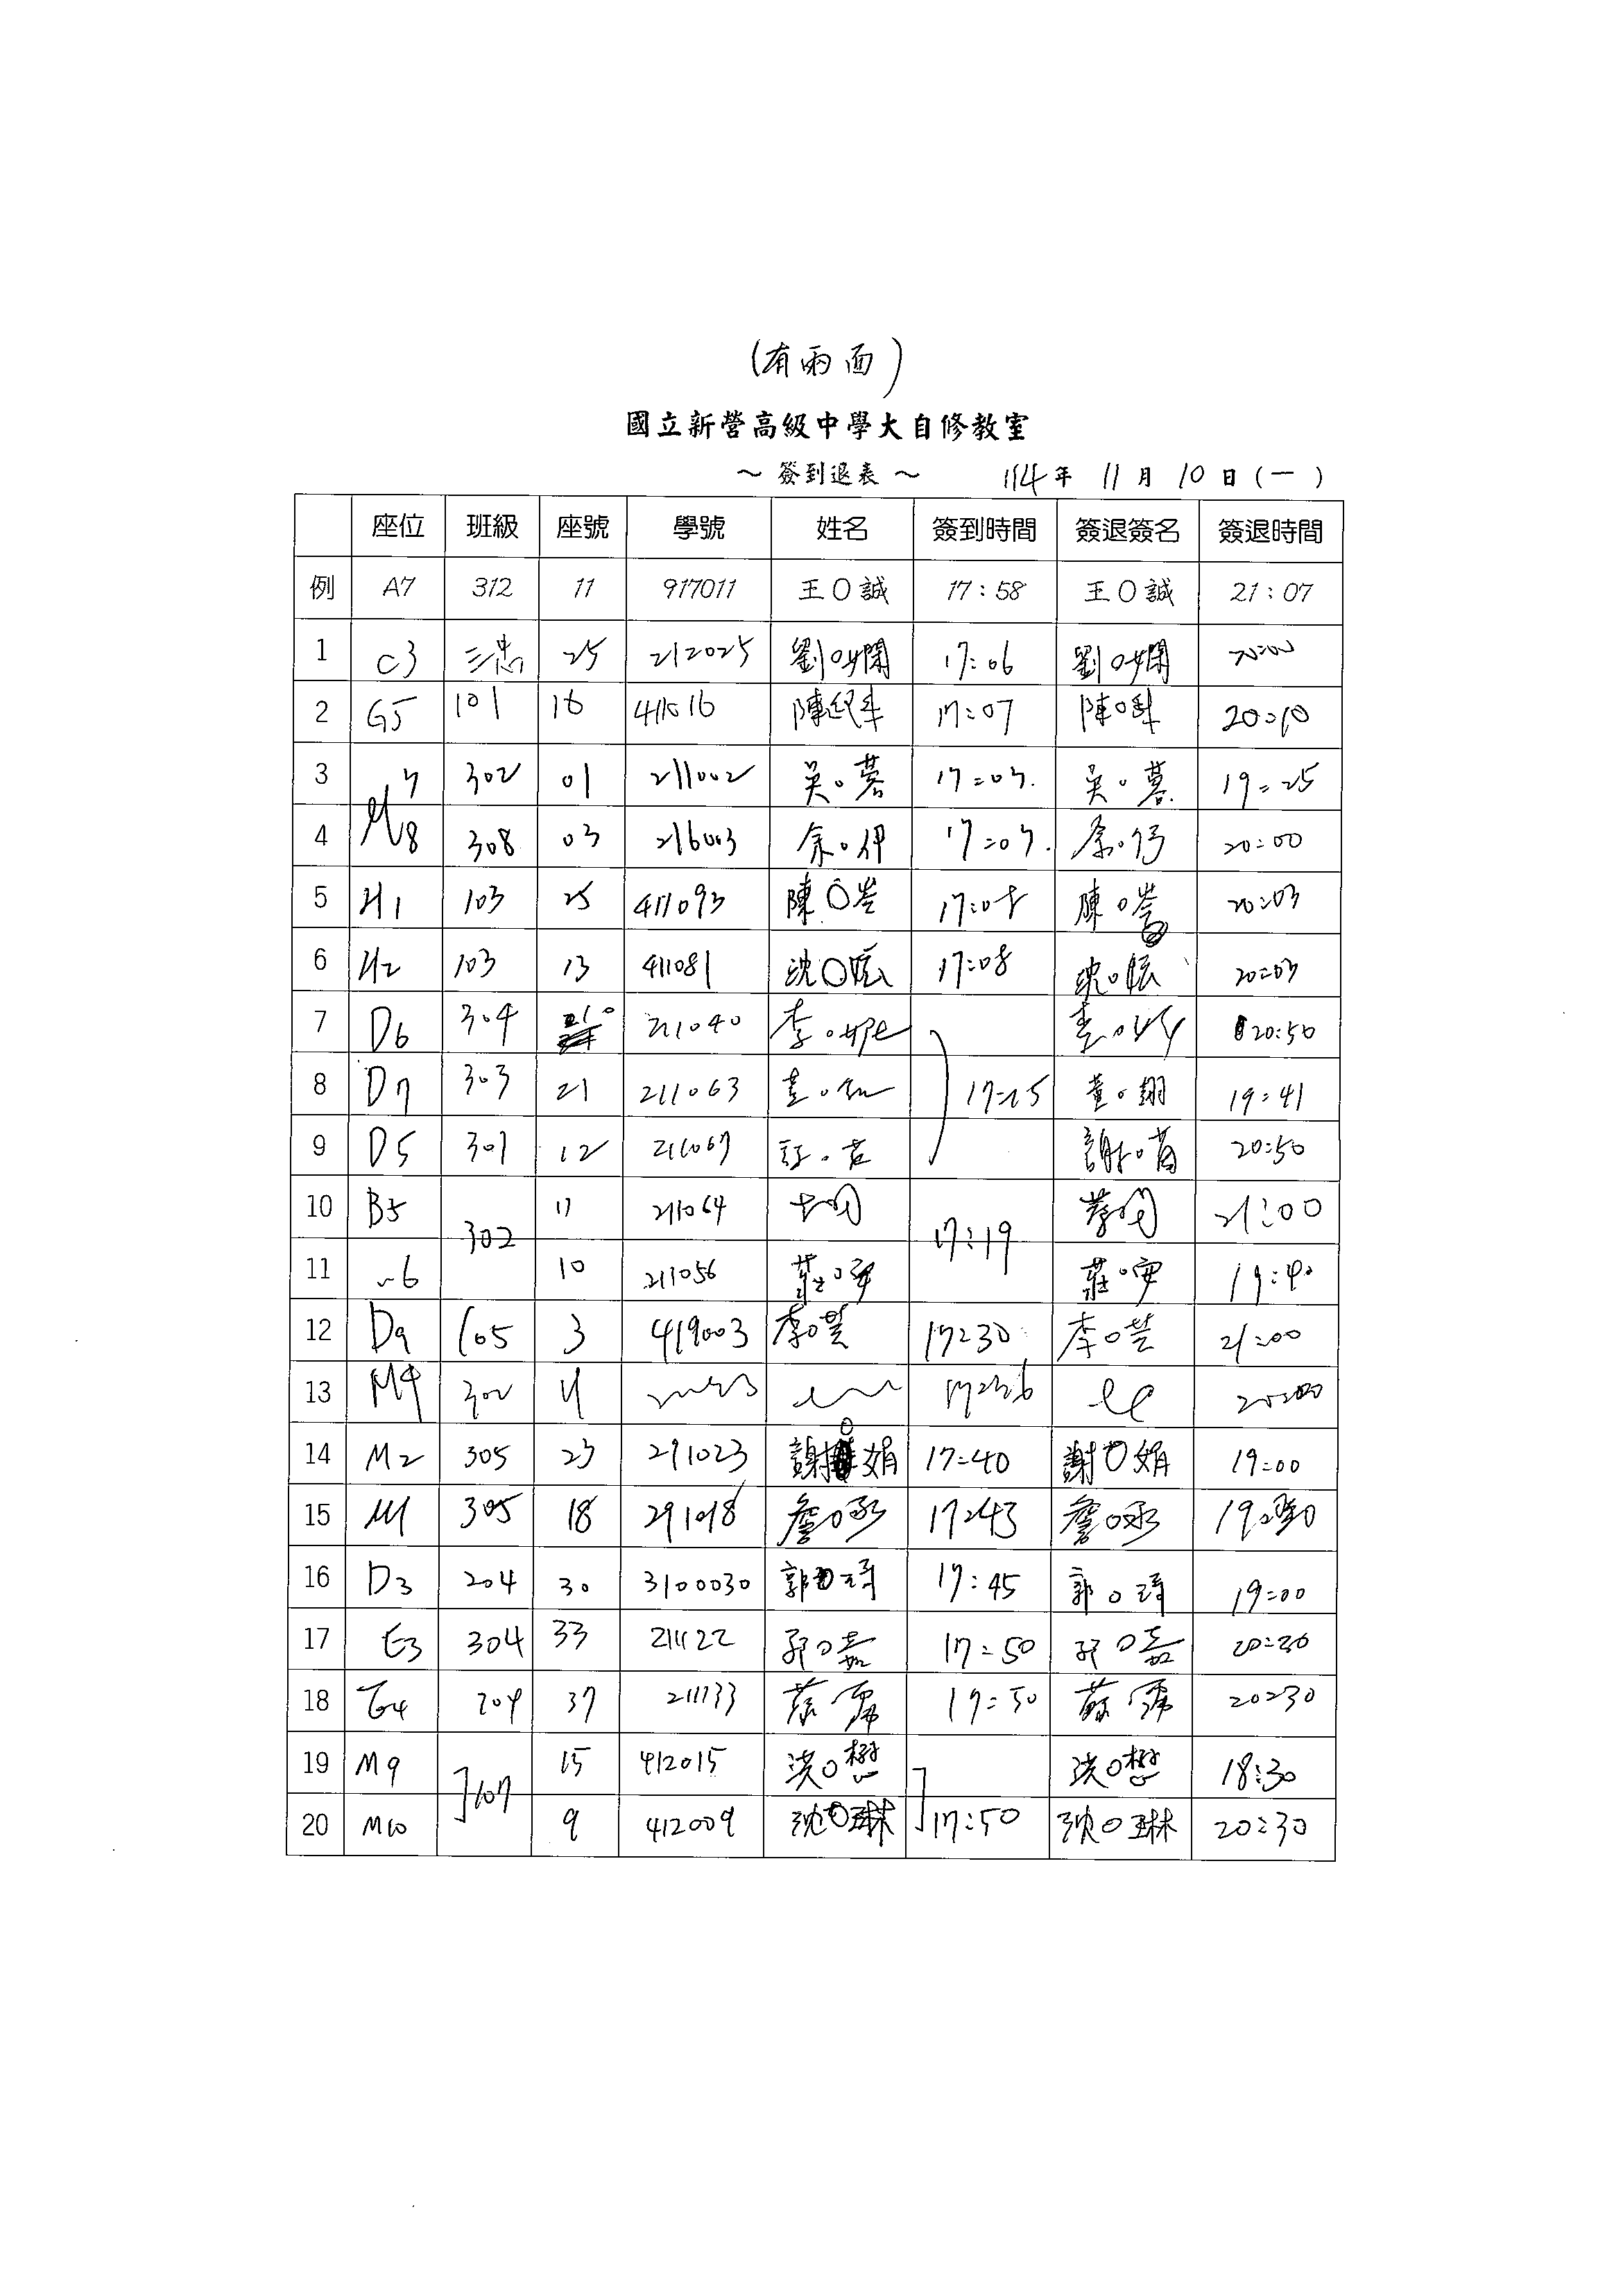 (有兩面)
國立新營高級中學大自修教室
～ 簽到退表 ～ 114年 11月 10日(一)
座位 班級 座號 學號 姓名 簽到時間 簽退簽名 簽退時間
例 A7 312 11 917011 王〇誠 17:58 王〇誠 21:07
1 C3 三忠 25 212025 劉〇嫻 17:06 劉〇嫻 20:00
2 G5 101 16 411016 陳 17:07 陳 20:10
3 302 01 211002 吳〇 17:07 吳〇 19:25
4 M8 308 03 216003 余〇 17:07 余〇 20:00
5 H1 103 25 411093 陳〇 17:08 陳〇 20:03
6 H2 103 13 411081 沈〇 17:08 沈〇 20:03
7 D6 304 211040 李〇 20:50
8 D7 303 21 211063 17:15 董〇翔 19:41
9 D5 301 12 謝〇 20:50
10 B5 302 11 211064 17:19 21:00
11 6 10 211056 莊〇 莊〇 19:40
12 D9 105 3 419003 李〇芸 17:30 李〇芸 21:00
13 M4 302 17:36 20:00
14 M2 305 23 291023 謝〇娟 17:40 謝〇娟 19:00
15 M1 305 18 291018 詹〇 17:43 詹〇
16 D3 204 30 3100030 郭〇琦 17:45 郭〇琦 19:00
17 E3 304 33 211122 〇嘉 17:50 〇嘉 20:30
18 37 211133 17:50 蘇 20:30
19 M9 107 15 412015 洪〇懋 洪〇懋 18:30
20 M10 9 412009 沈〇琳 17:50 沈〇琳 20:30